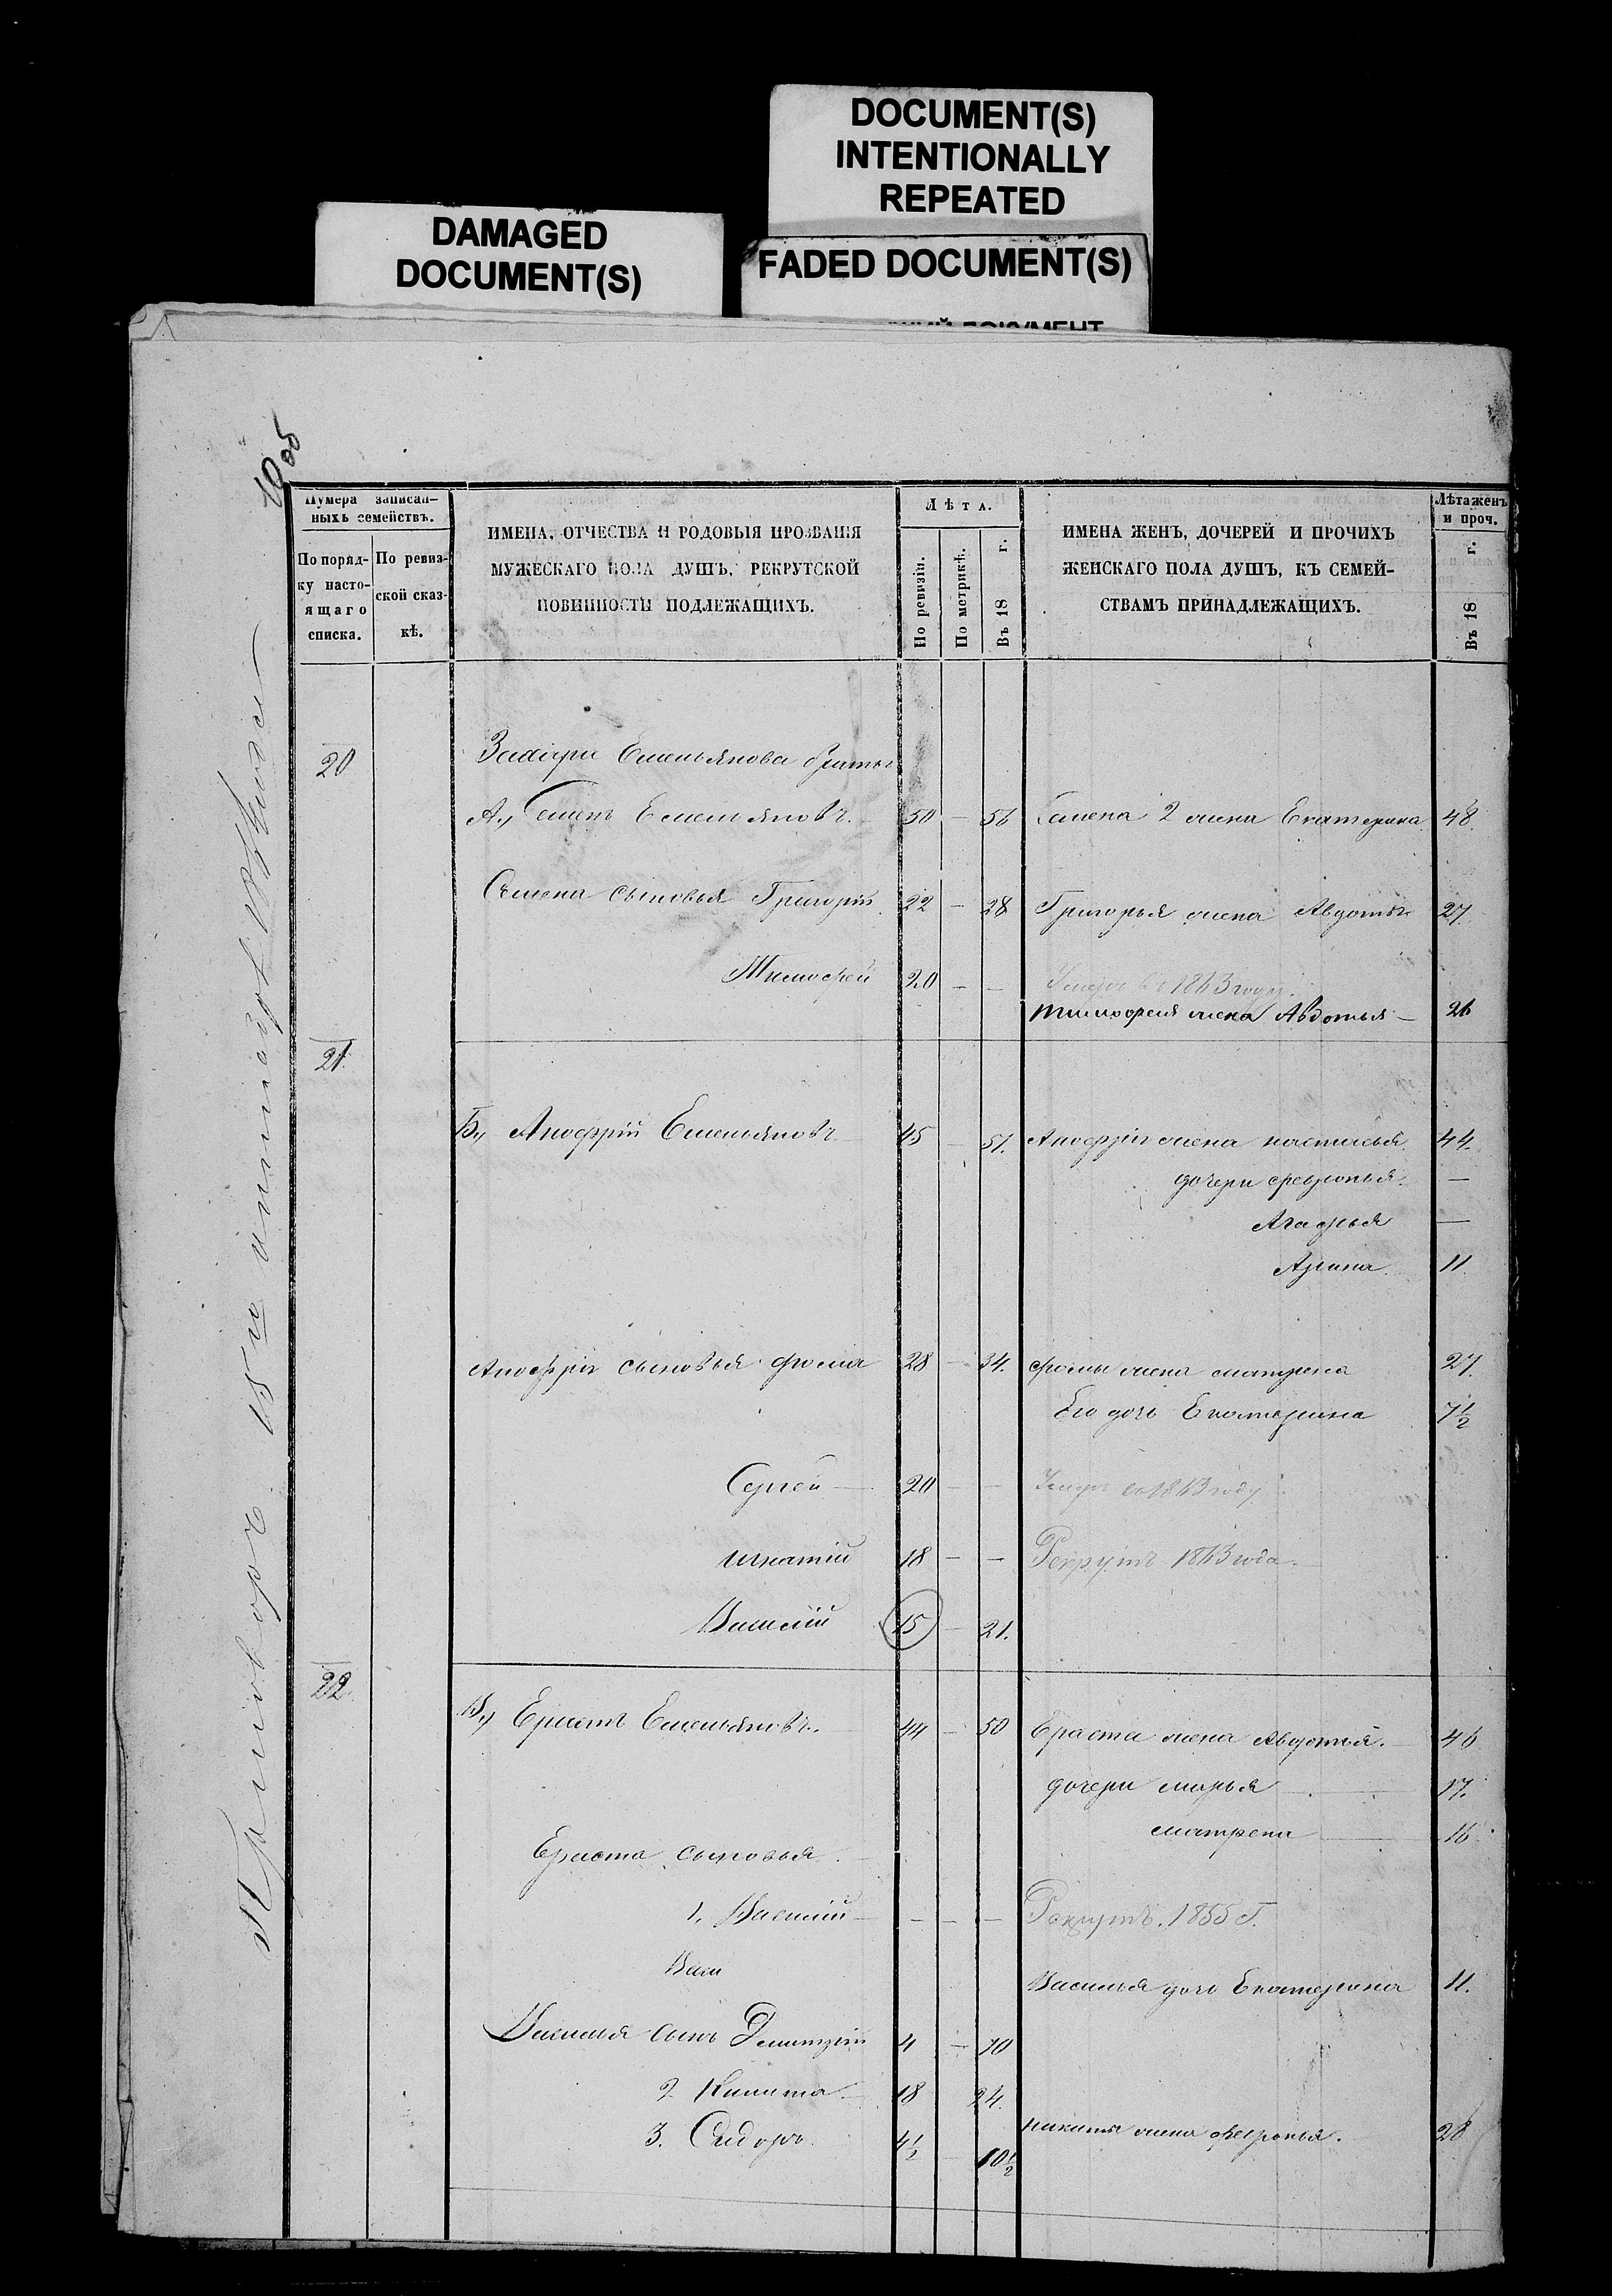 DOCUMENT(S)
INTENTIONALLY
REPEATED
DAMAGED
DOCUMENT(S)
FADED DOCUMENT(S)
Нумера записан-
ныхъ семействъ.
По поряд-
ку насто-
ящаго
списка.
По ревиз-
ской сказ-
кѣ.
ИМЕНА, ОТЧЕСТВА И РОДОВЫЯ ПРОЗВАНІЯ
МУЖЕСКАГО ПОЛА ДУШЪ, РЕКРУТСКОЙ
ПОВИННОСТИ ПОДЛЕЖАЩИХЪ.
Лѣта.
По ревизіи.
По метрикѣ.
Въ 18 г.
ИМЕНА ЖЕНЪ, ДОЧЕРЕЙ И ПРОЧИХЪ
ЖЕНСКАГО ПОЛА ДУШЪ, КЪ СЕМЕЙ-
СТВАМЪ ПРИНАДЛЕЖАЩИХЪ.
Лѣта женъ
и проч.
Въ 18 г.
20 Захара Емельянова братья
А., Семенъ Емельяновъ. 50 — 56 Семена 2 жена Екатерина 48
Семена сыновья Григорій 22 — 28 Григорья жена Авдотья 27
Тимофей 20 — — Умеръ въ 1863 году.
Тимофея жена Авдотья — 26
21.
Б., Анофрій Емельяновъ 45 — 51. Анофрія жена настасья 44.
дочери февронья. —
Агафья —
Арина 11.
Анофрія сыновья фома 28 — 34. фомы жена матрена 27.
Его дочь Екатерина 7½
Сергей — 20 — — Умеръ въ 1863 году.
игнатій 18 — — Рекрутъ 1863 года.
Василій 15 — 21.
22.
В., Ерастъ Емельяновъ. 44 — 50 Ераста жена Авдотья. 46
дочери марья 17.
матрена 16
Ераста сыновья.
1. Василій — — — — Рекрутъ. 1855 г.
Васи
Василья дочь Екатерина 11.
Василья сынъ Дмитрій 4 — 10
2 Никита 18 24.
никиты жена февронья. 28
3. Сидоръ 4½ 10½